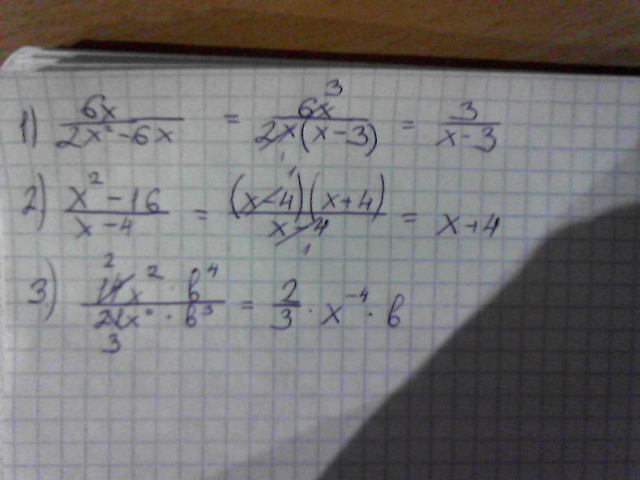 1) 6x / 2x² - 6x = 6x 3 / 2x(x-3) 1 = 3 / x-3
2) x² - 16 / x-4 = (x-4) 1 (x+4) / x-4 1 = x+4
3) 14 2 x² · b⁴ / 21 3 x · b³ = 2/3 · x⁻⁴ · b